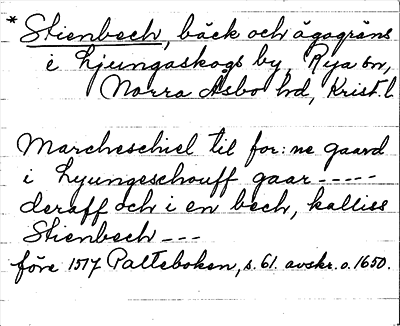 * Stienbech, bäck och ägogräns
i Ljungaskogs by, Rya sn,
Norra Åsbo hd, Krist. l.
Marcheschiel til for: ne gaard
i Lyungeschouff gaar -----
deraff och i en bech, kalliss
Stienbech ---
före 1517 Palteboken, s. 61. avskr. o. 1650.